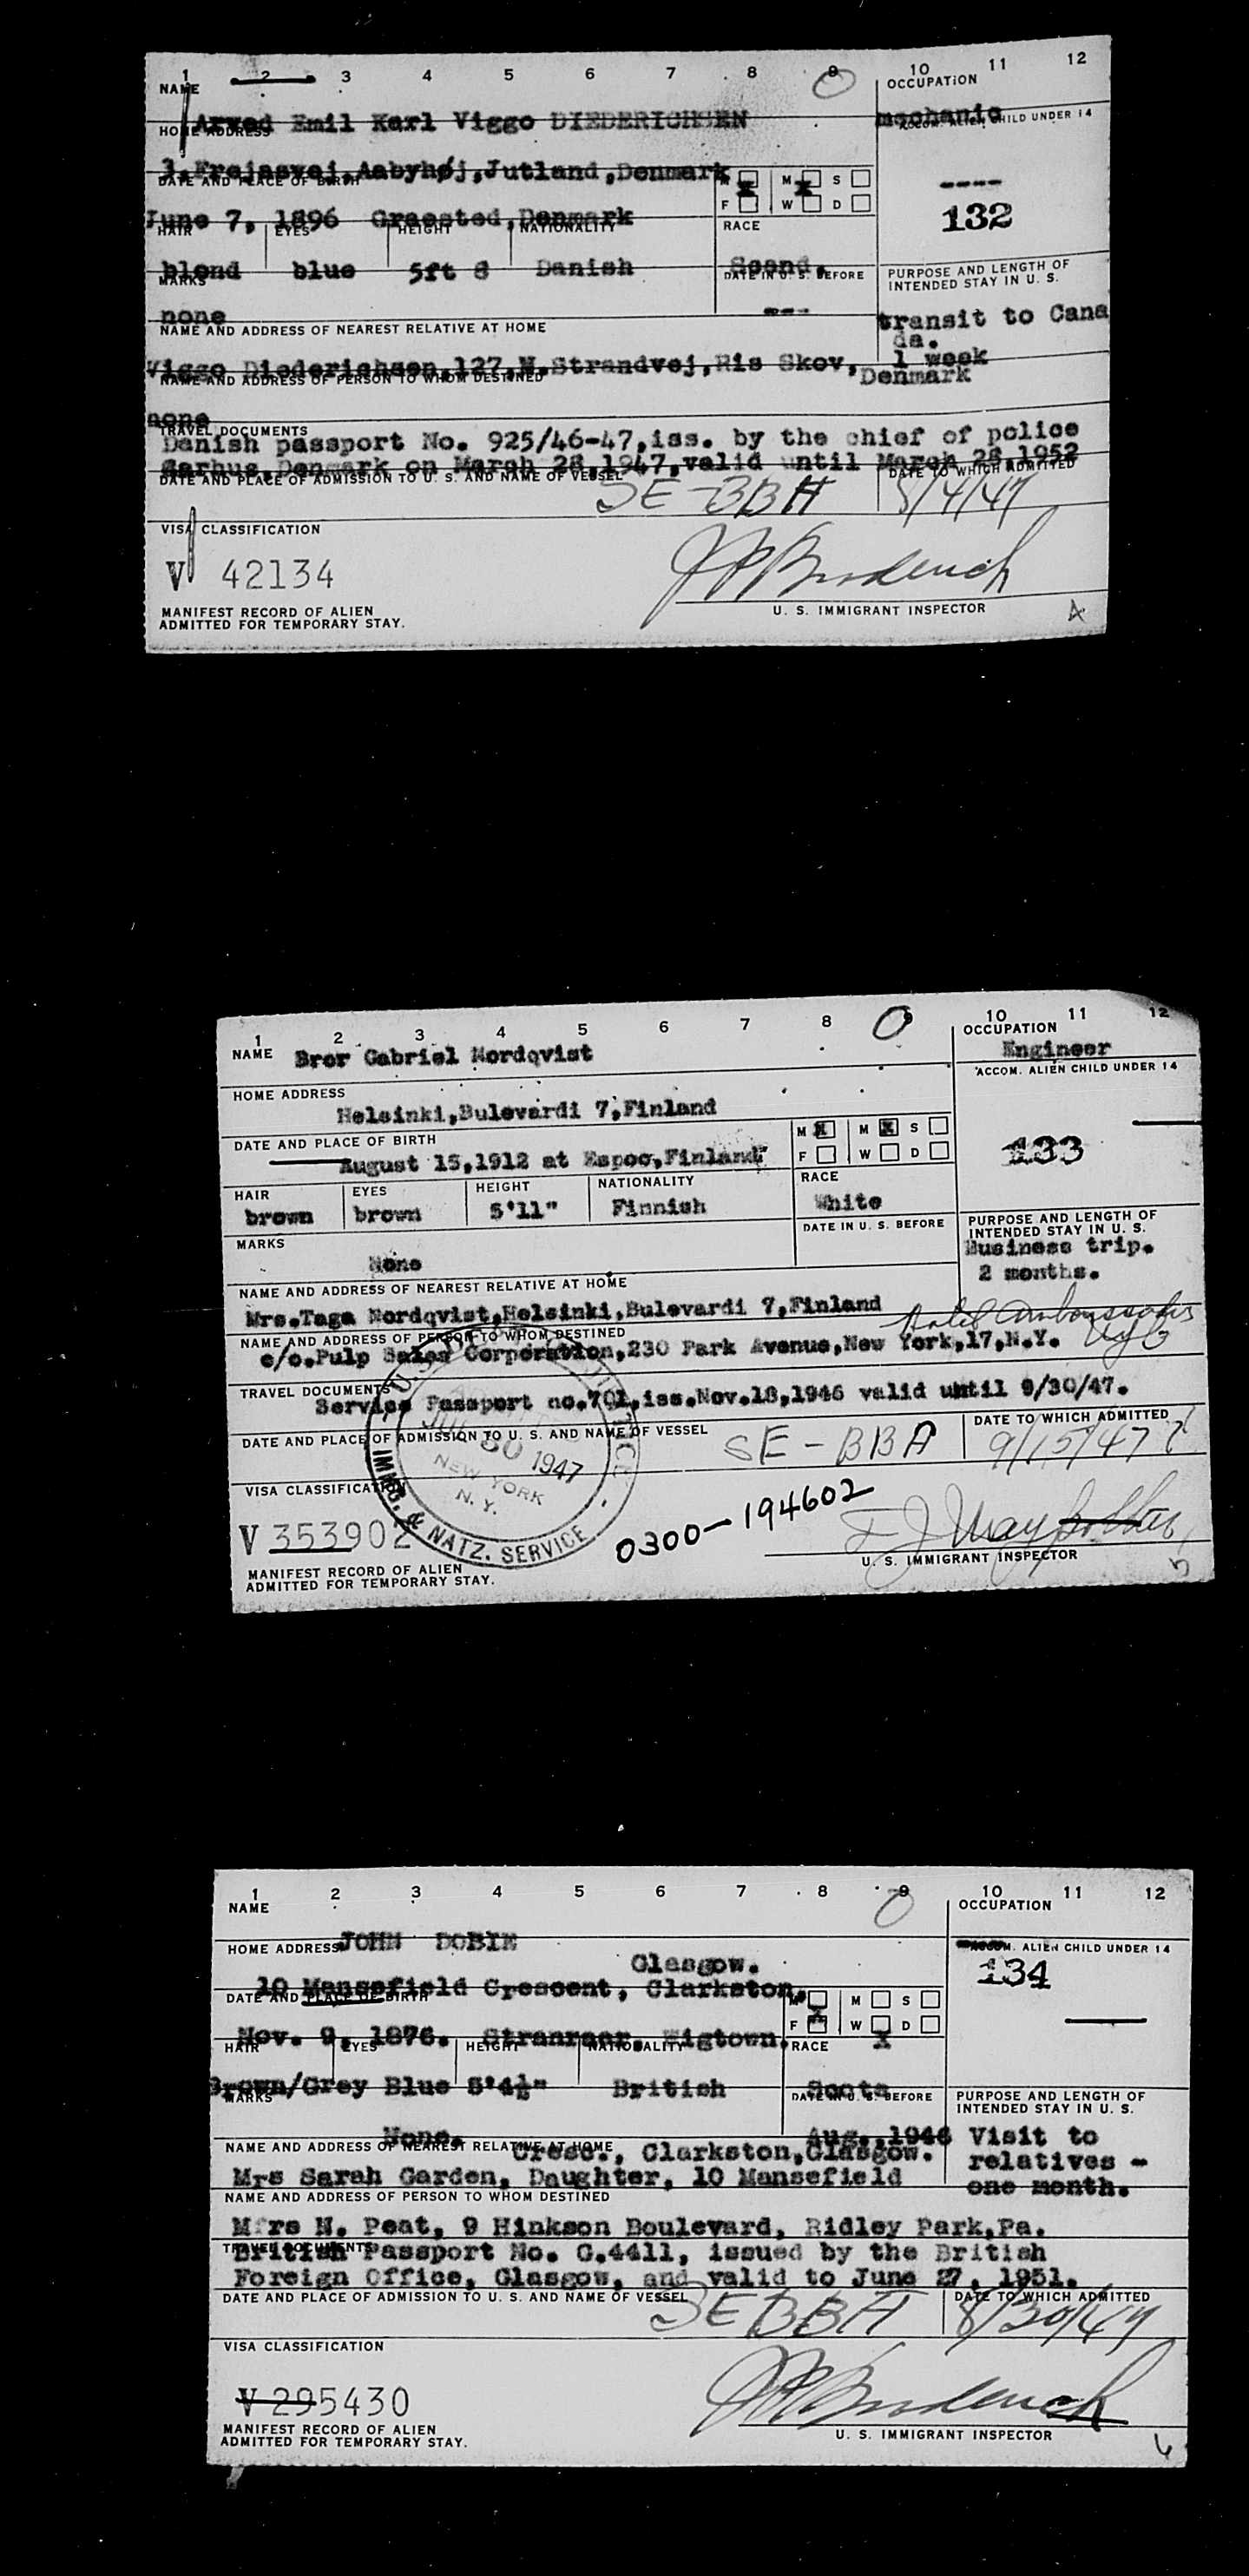 1 2 3 4 5 6 7 8 9 10 11 12
NAME
OCCUPATION
Arved Emil Karl Viggo DIEDERICHSEN
mechanic
HOME ADDRESS
ACCOM. ALIEN CHILD UNDER 14
3, Frejasvej, Aabyhøj, Jutland, Denmark
DATE AND PLACE OF BIRTH
M X M X S
F W D
----
132
June 7, 1896 Graested, Denmark
HAIR EYES HEIGHT NATIONALITY RACE
blond blue 5ft 8 Danish Scand.
MARKS
DATE IN U. S. BEFORE
PURPOSE AND LENGTH OF
INTENDED STAY IN U. S.
none
---
transit to Cana
da.
1 week
NAME AND ADDRESS OF NEAREST RELATIVE AT HOME
Viggo Diederichsen, 127, N. Strandvej, Ris Skov,
Denmark
NAME AND ADDRESS OF PERSON TO WHOM DESTINED
none
TRAVEL DOCUMENTS
Danish passport No. 925/46-47, iss. by the chief of police
Aarhus, Denmark on March 28, 1947, valid until March 28, 1952
DATE AND PLACE OF ADMISSION TO U. S. AND NAME OF VESSEL
DATE TO WHICH ADMITTED
SE-BBA 8/4/47
VISA CLASSIFICATION
V 42134
MANIFEST RECORD OF ALIEN
ADMITTED FOR TEMPORARY STAY.
U. S. IMMIGRANT INSPECTOR
1 2 3 4 5 6 7 8 9 10 11 12
NAME Bror Gabriel Nordqvist
OCCUPATION
Engineer
HOME ADDRESS
ACCOM. ALIEN CHILD UNDER 14
Helsinki, Bulevardi 7, Finland
DATE AND PLACE OF BIRTH
M X M X S
F W D
133
August 15, 1912 at Espoo, Finland
HAIR EYES HEIGHT NATIONALITY RACE
brown brown 5'11" Finnish White
MARKS
DATE IN U. S. BEFORE
PURPOSE AND LENGTH OF
INTENDED STAY IN U. S.
None
Business trip.
2 months.
NAME AND ADDRESS OF NEAREST RELATIVE AT HOME
Mrs. Taga Nordqvist, Helsinki, Bulevardi 7, Finland
Hotel Ambassador
NAME AND ADDRESS OF PERSON TO WHOM DESTINED
c/o. Pulp Sales Corporation, 230 Park Avenue, New York, 17, N.Y.
TRAVEL DOCUMENTS
Service Passport no. 701, iss. Nov. 18, 1946 valid until 9/30/47.
DATE AND PLACE OF ADMISSION TO U. S. AND NAME OF VESSEL
DATE TO WHICH ADMITTED
SE-BBA 9/15/47
30 1947
NEW YORK
N. Y.
IMMG. & NATZ. SERVICE
VISA CLASSIFICATION
V 353902
0300-194602
MANIFEST RECORD OF ALIEN
ADMITTED FOR TEMPORARY STAY.
U. S. IMMIGRANT INSPECTOR
1 2 3 4 5 6 7 8 9 10 11 12
NAME
OCCUPATION
JOHN DOBIE
HOME ADDRESS
ACCOM. ALIEN CHILD UNDER 14
Glasgow.
10 Mansefield Crescent, Clarkston,
134
DATE AND PLACE OF BIRTH
M X M S
F W X D
Nov. 9, 1876. Stranraer, Wigtown.
HAIR EYES HEIGHT NATIONALITY RACE
Brown/Grey Blue 5'4½" British Scots
MARKS
DATE IN U. S. BEFORE
PURPOSE AND LENGTH OF
INTENDED STAY IN U. S.
None.
Aug., 1946
Visit to
relatives -
one month.
NAME AND ADDRESS OF NEAREST RELATIVE AT HOME
Cresc., Clarkston, Glasgow.
Mrs Sarah Garden, Daughter, 10 Mansefield
NAME AND ADDRESS OF PERSON TO WHOM DESTINED
Mrs N. Peat, 9 Hinkson Boulevard, Ridley Park, Pa.
TRAVEL DOCUMENTS
British Passport No. C.4411, issued by the British
Foreign Office, Glasgow, and valid to June 27, 1951.
DATE AND PLACE OF ADMISSION TO U. S. AND NAME OF VESSEL
DATE TO WHICH ADMITTED
SEBBA 8/30/47
VISA CLASSIFICATION
V 295430
MANIFEST RECORD OF ALIEN
ADMITTED FOR TEMPORARY STAY.
U. S. IMMIGRANT INSPECTOR